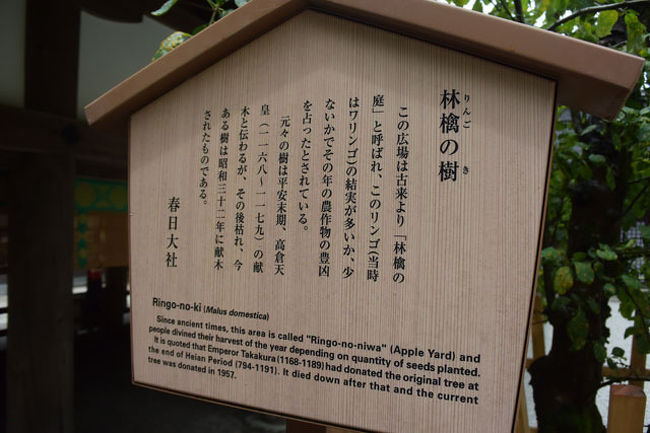 林檎の樹
りんご き
この広場は古来より「林檎の
庭」と呼ばれ、このリンゴ(当時
はワリンゴ)の結実が多いか、少
ないかでその年の農作物の豊凶
を占ったとされている。
元々の樹は平安末期、高倉天
皇(一一六八〜一一七九)の献
木と伝わるが、その後枯れ、今
ある樹は昭和三十二年に献木
されたものである。
春日大社
Ringo-no-ki (Malus domestica)
Since ancient times, this area is called "Ringo-no-niwa" (Apple Yard) and
people divined their harvest of the year depending on quantity of seeds planted.
It is quoted that Emperor Takakura (1168-1189) had donated the original tree at
the end of Heian Period (794-1191). It died down after that and the current
tree was donated in 1957.